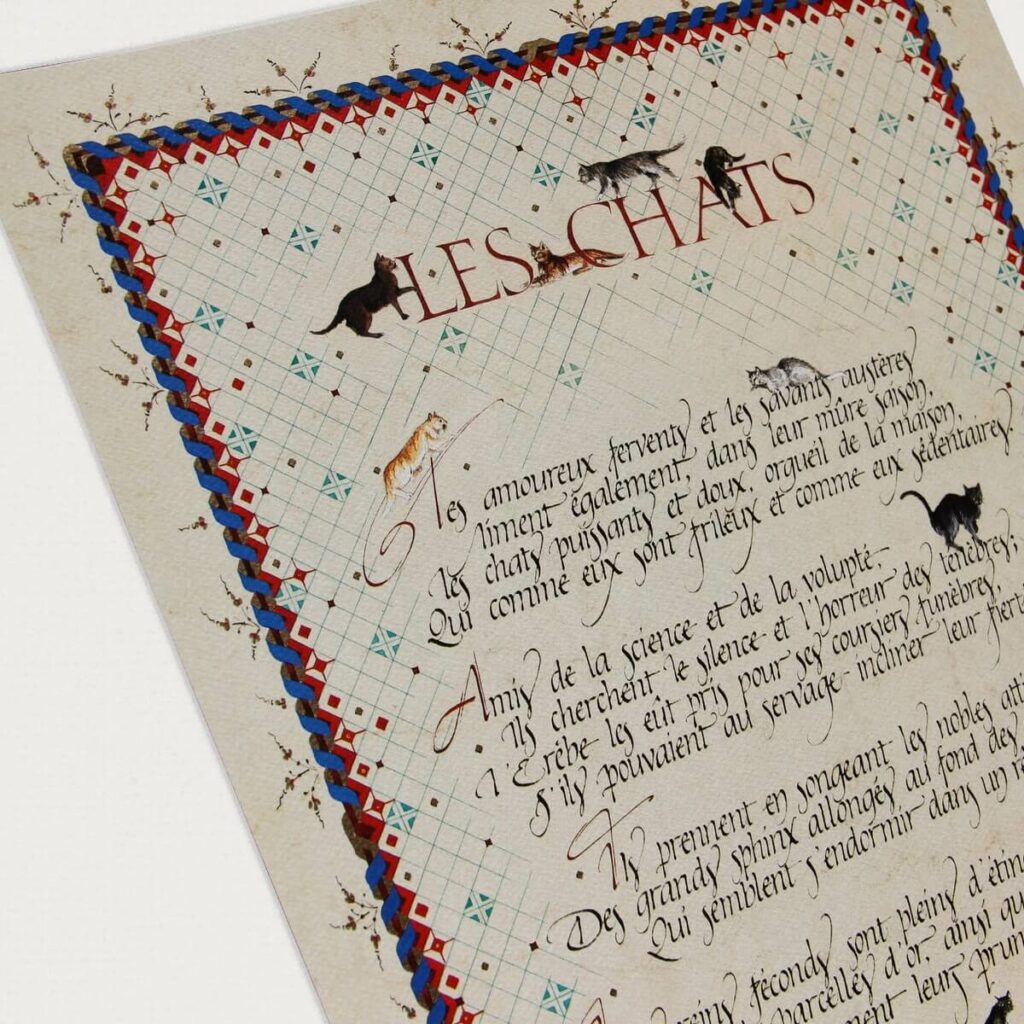 LES CHATS
Les amoureux fervents et les savants austères
Aiment également dans leur mûre saison,
les chats puissants et doux, orgueil de la maison,
Qui comme eux sont frileux et comme eux sédentaires.
Amis de la science et de la volupté.
Ils cherchent le silence et l'horreur des ténèbres;
L'Erèbe les eût pris pour ses coursiers funèbres,
S'ils pouvaient au servage incliner leur fiert
Ils prennent en songeant les nobles atti
Des grands sphinx allongés au fond des
Qui semblent s'endormir dans un rê
reins féconds sont pleins d'étin
parcelles d'or, ainsi qu
ment leurs prun